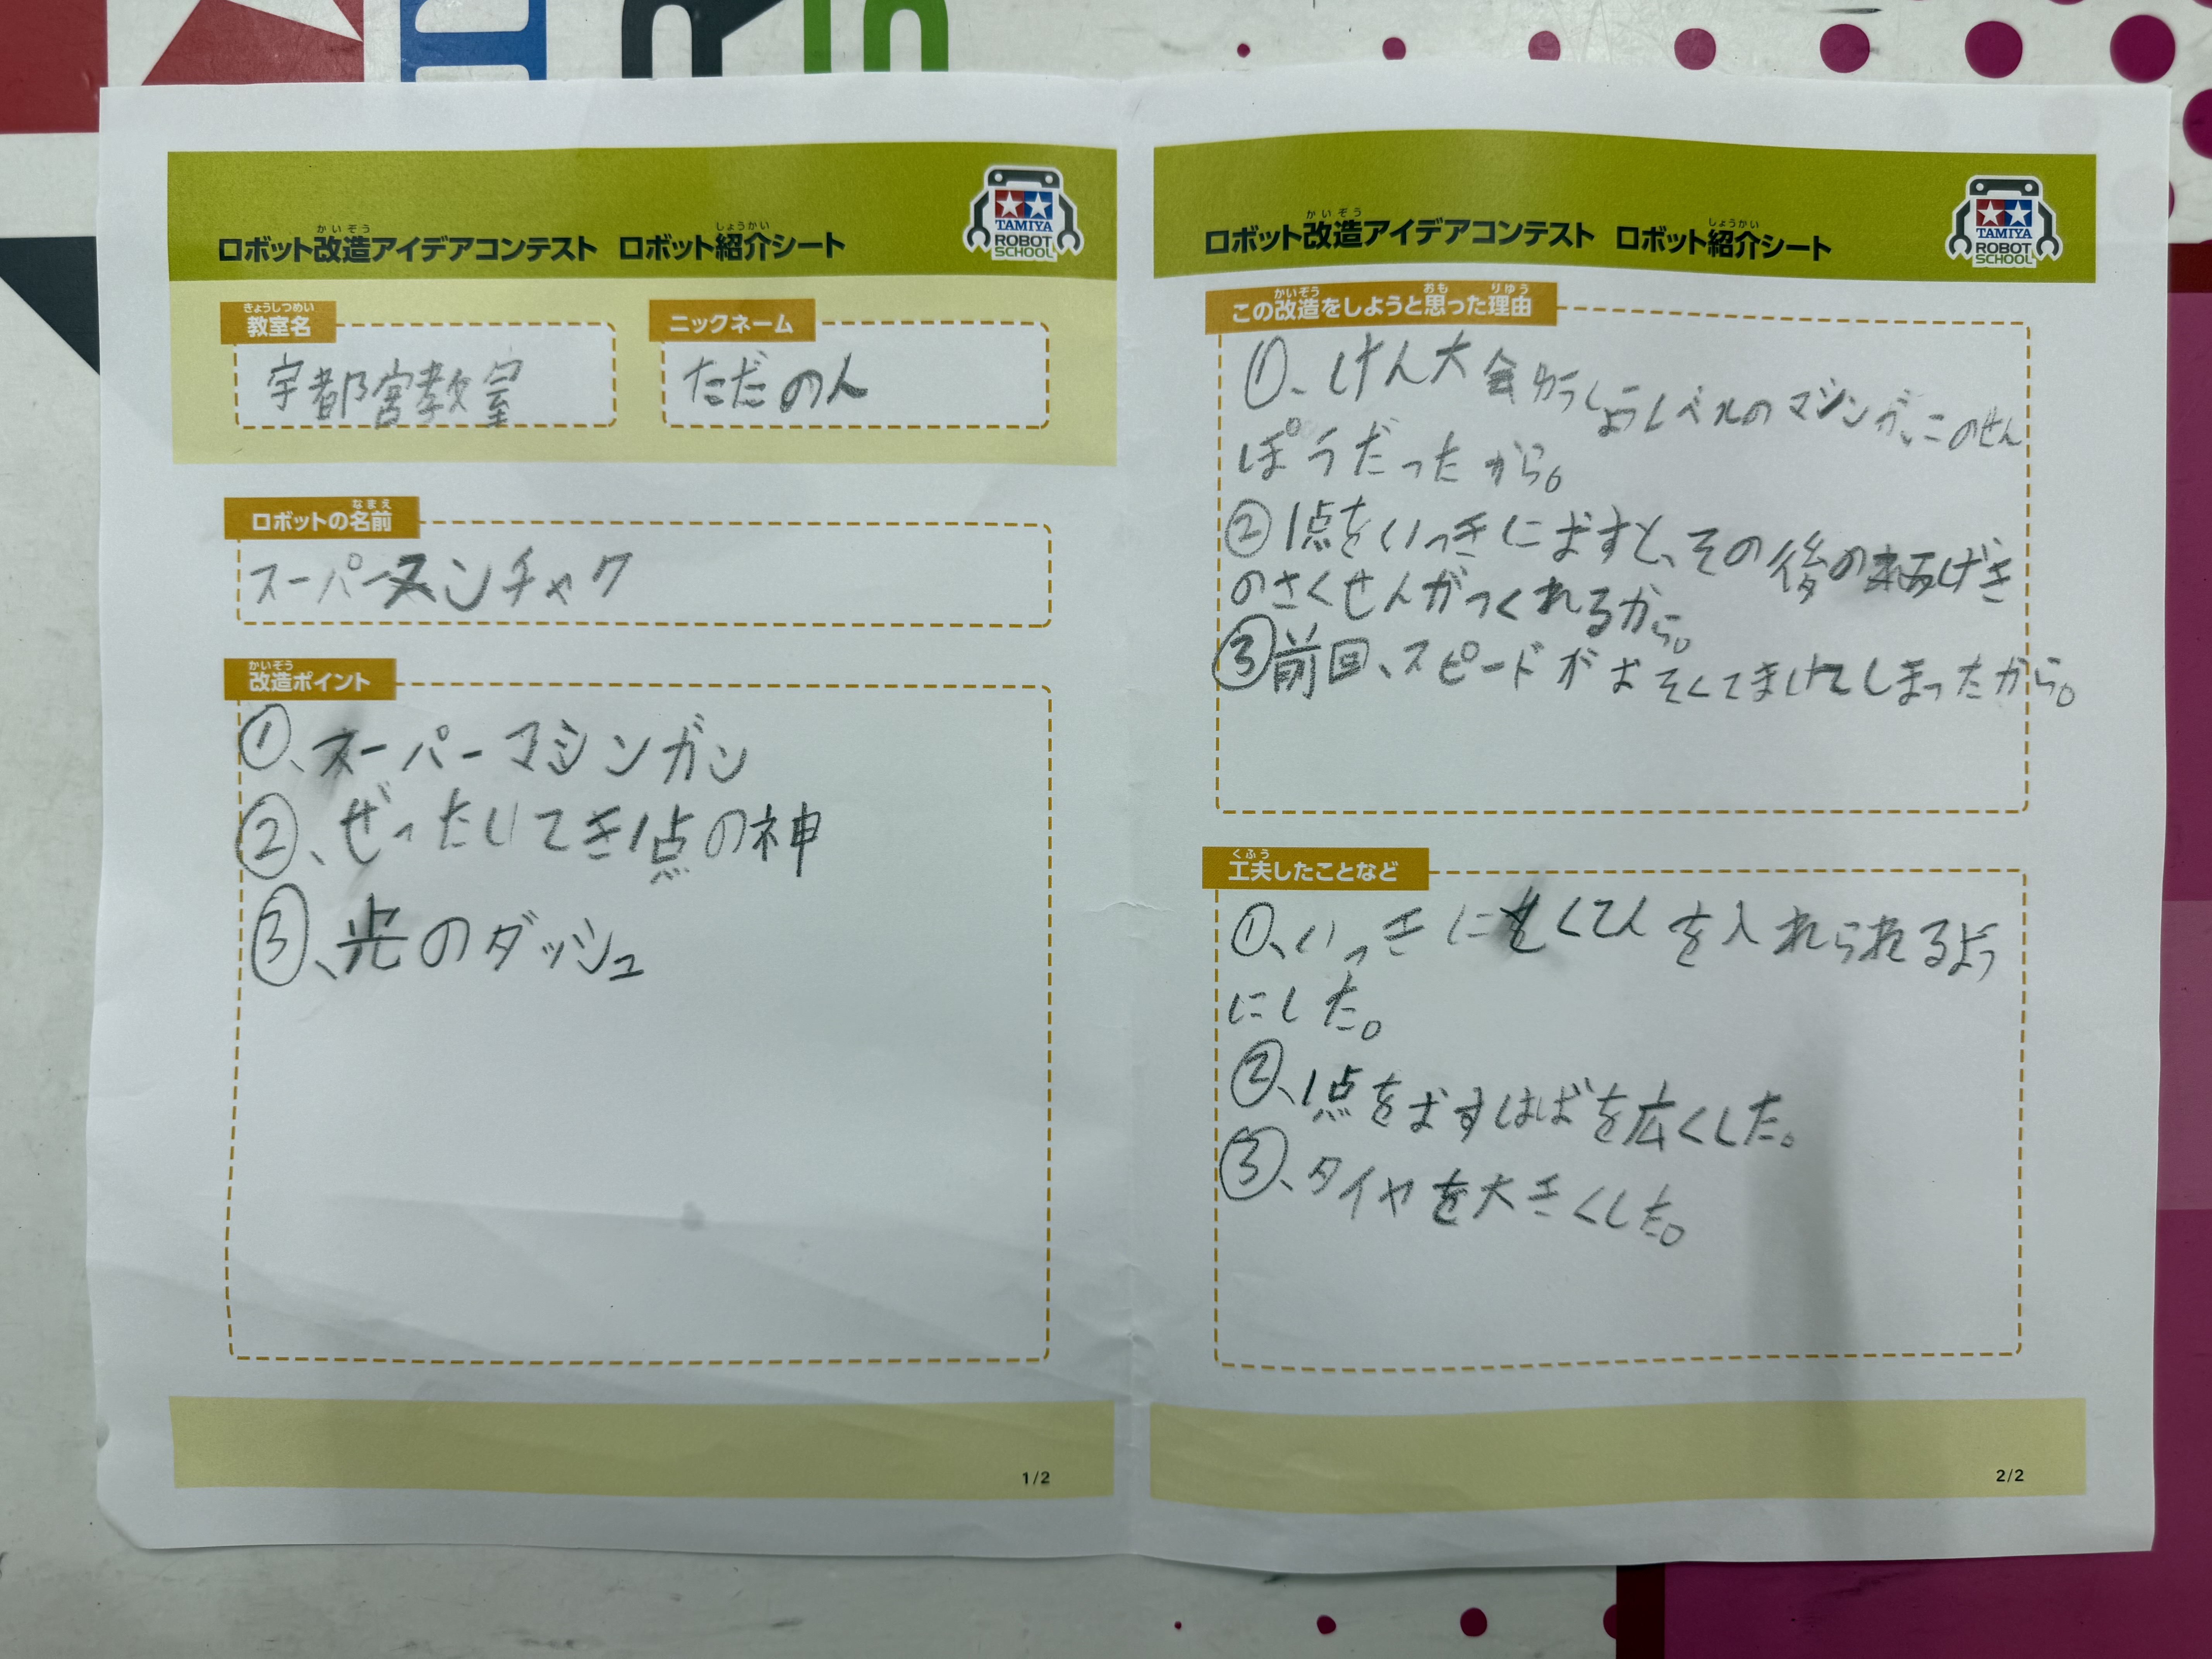 ロボット改造アイデアコンテスト ロボット紹介シート
かいぞう
しょうかい
TAMIYA
ROBOT
SCHOOL
きょうしつめい
教室名
宇都宮教室
ニックネーム
ただの人
なまえ
ロボットの名前
スーパーヌンチャク
かいぞう
改造ポイント
①、スーパーマシンガン
②、ぜったいてき1点の神
③、光のダッシュ
1/2
ロボット改造アイデアコンテスト ロボット紹介シート
かいぞう
しょうかい
TAMIYA
ROBOT
SCHOOL
かいぞう おも りゆう
この改造をしようと思った理由
①、けん大会ゆうしょうレベルのマシンが、このせん
ぽうだったから。
②1点をいっきにおすと、その後のげき
のさくせんがつくれるから。
③前回、スピードがおそくてまけてしまったから。
くふう
工夫したことなど
①、いっきにとくてんを入れられるよう
にした。
②、1点をおすはばを広くした。
③、タイヤを大きくした。
2/2